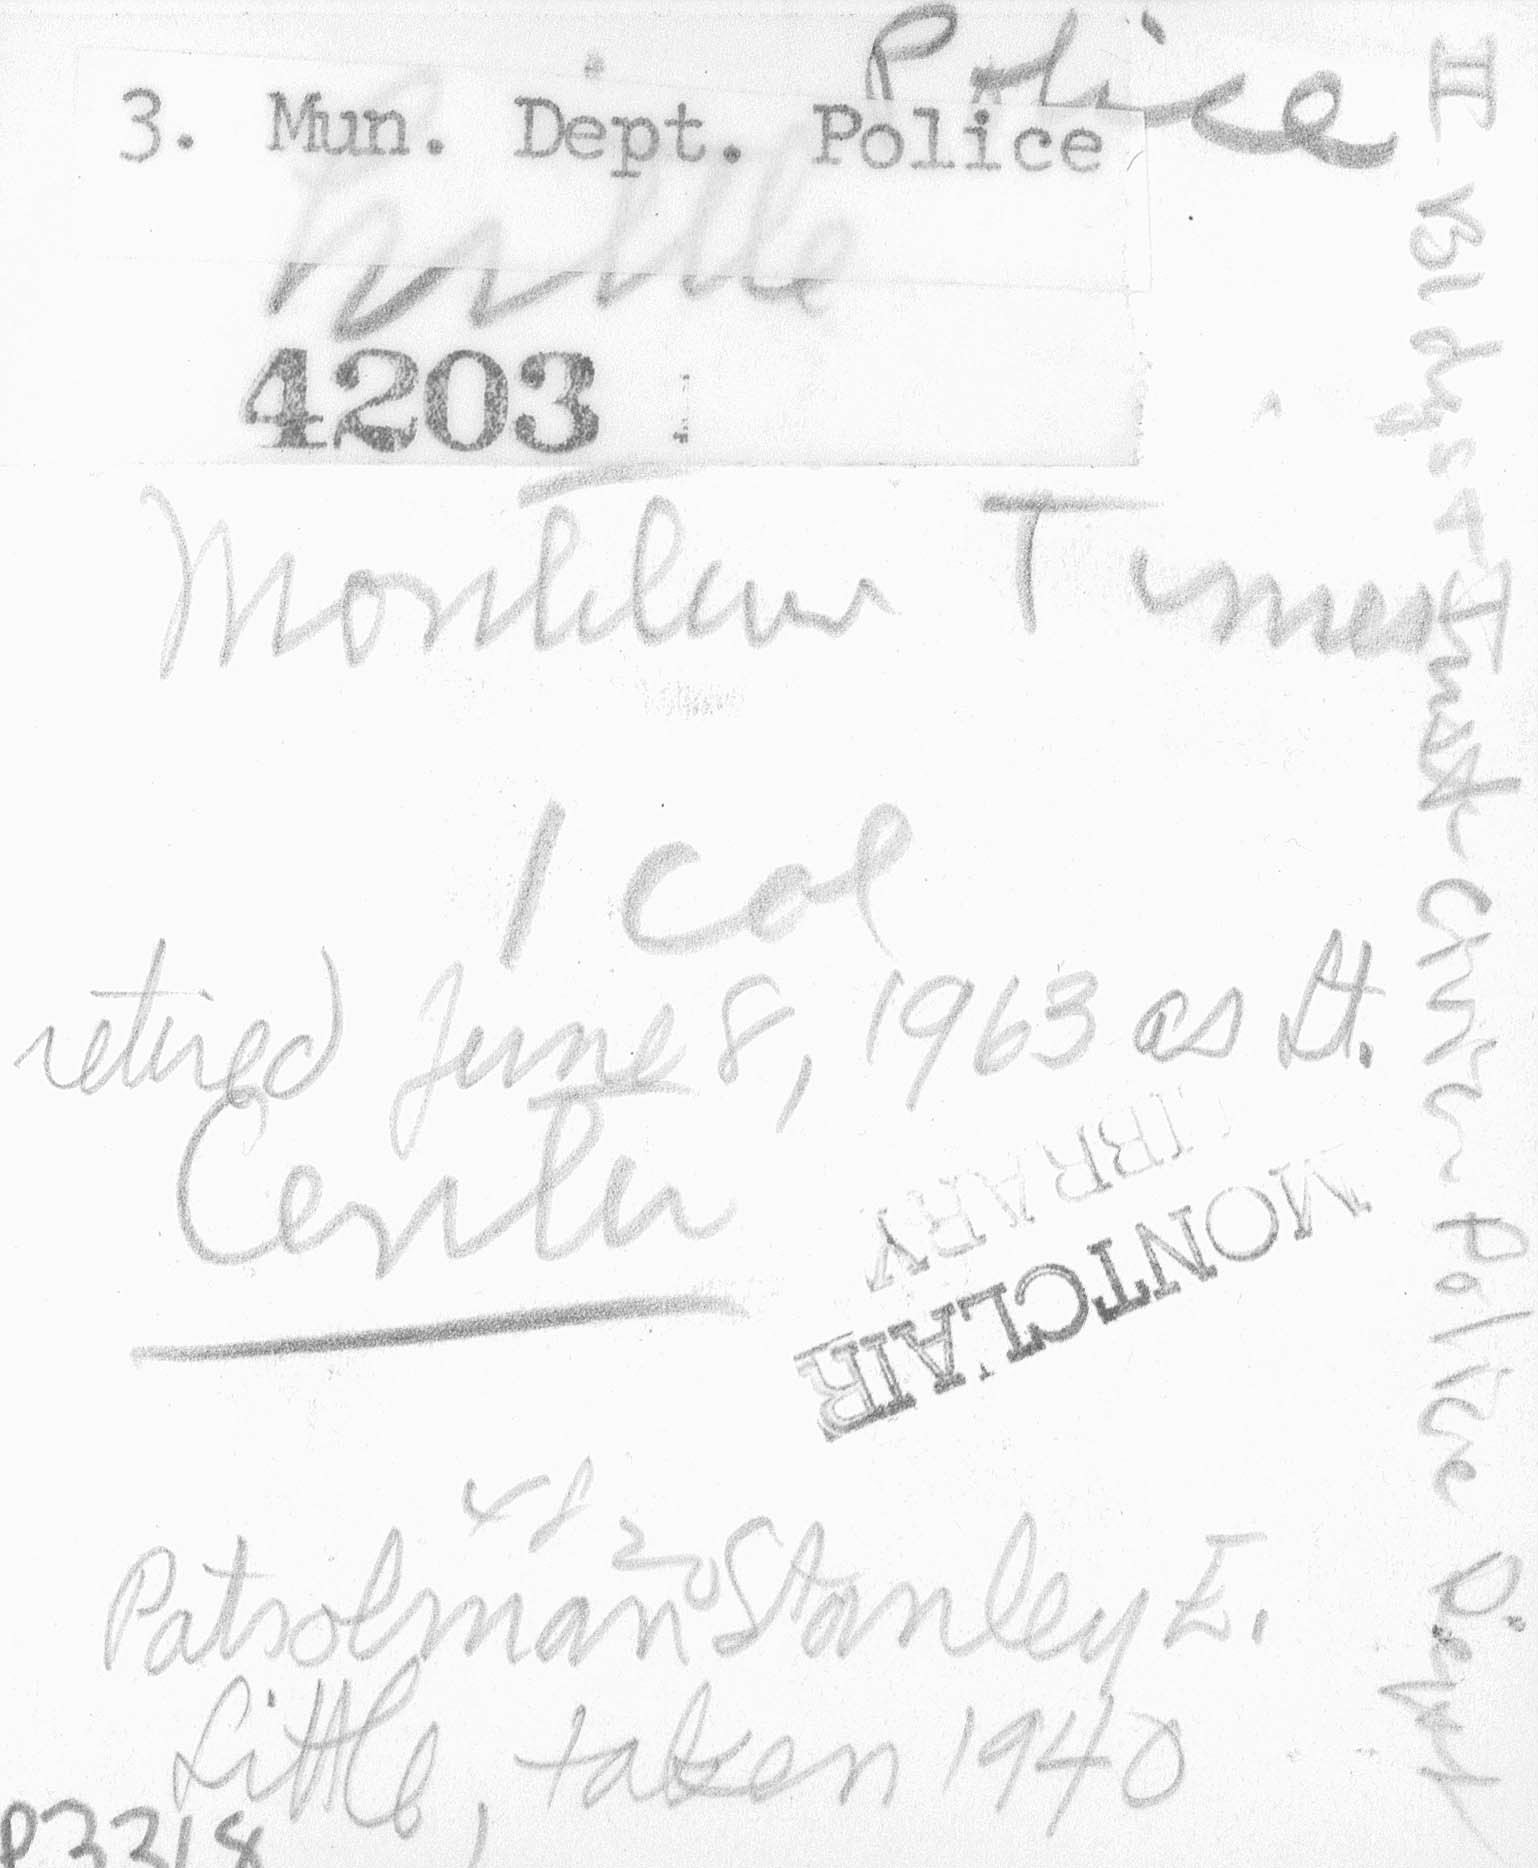 Police
3. Mun. Dept. Police
Little
4203
Montclair Times
1 Col
retired June 8, 1963 as Lt.
Center
MONTCLAIR
LIBRARY
48
20
Patrolman Stanley E.
Little, taken 1940
P3318
II Bldgs & Inst - Civic - Police Dept